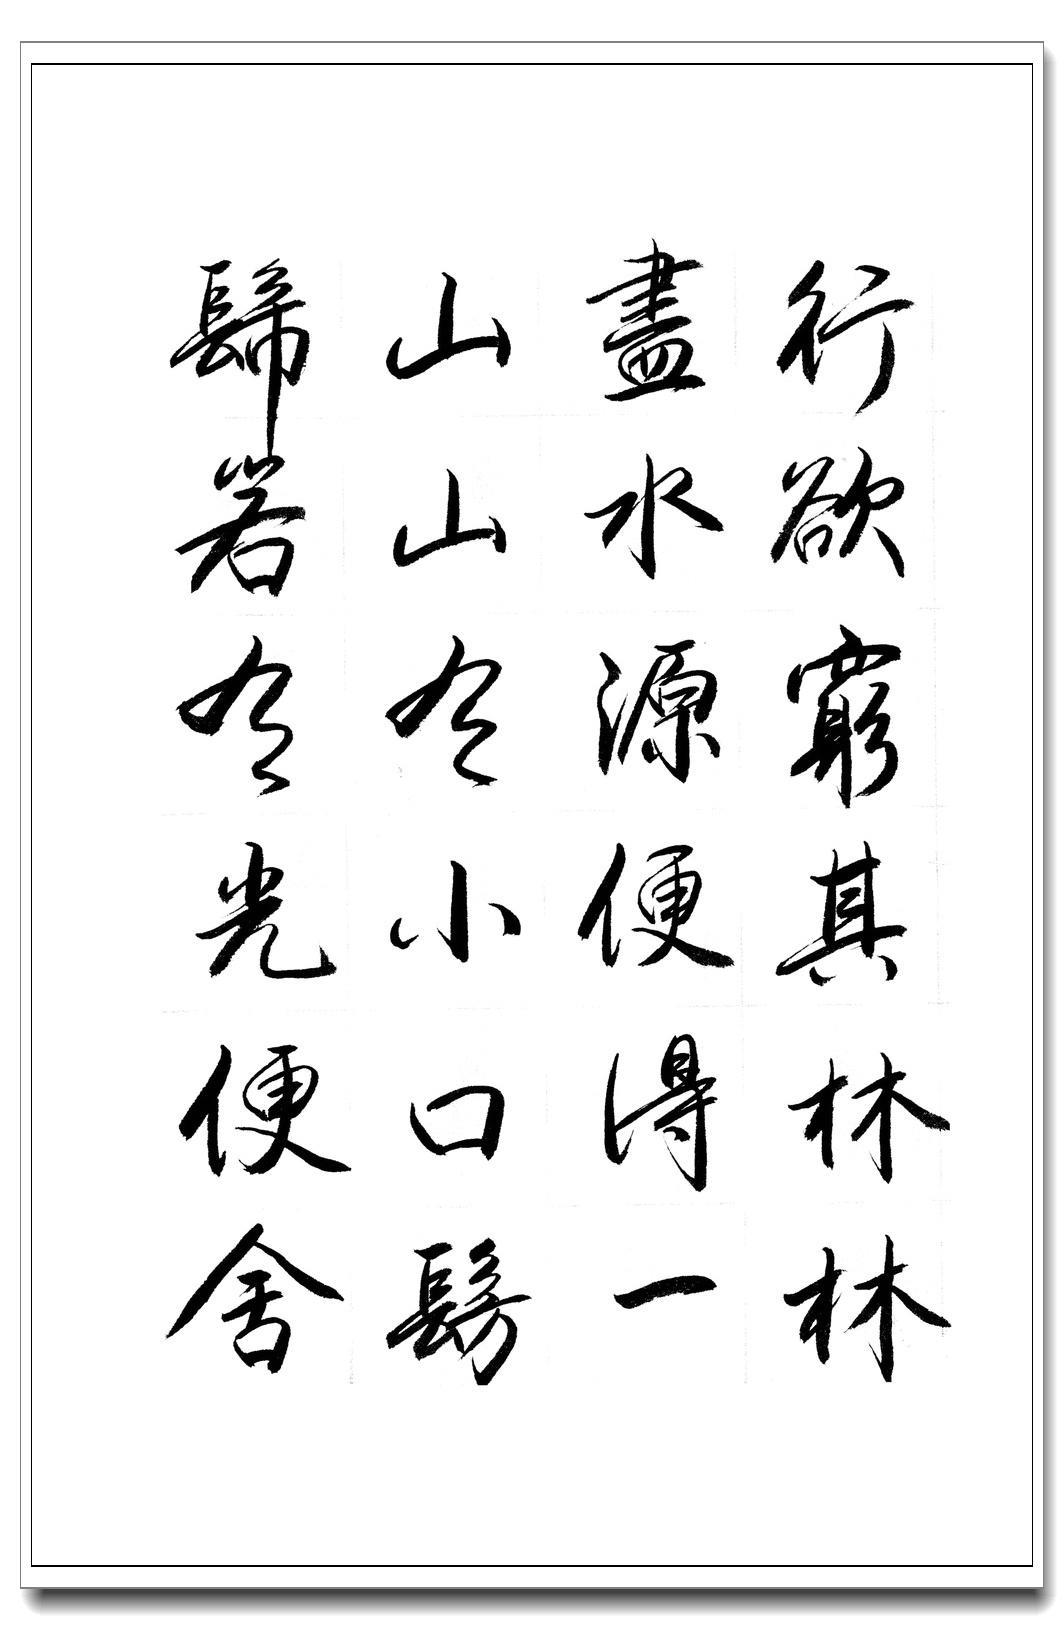 行欲窮其林林
盡水源便得一
山山有小口髣
髴若有光便舍